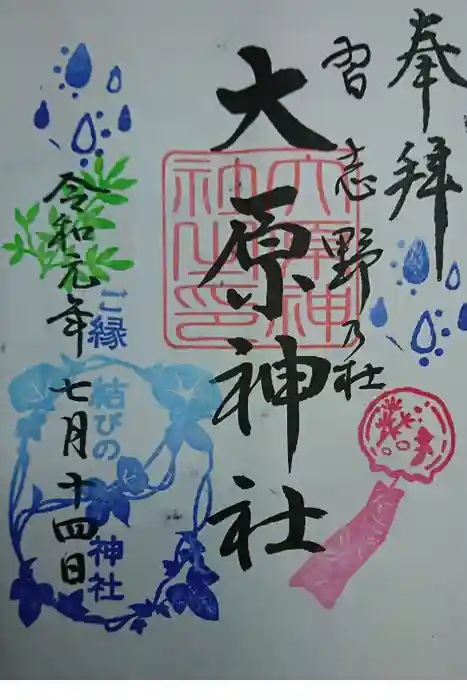 奉拝
習志野乃社
大原神社
大原神社之印
ご縁結びの神社
令和元年七月十四日